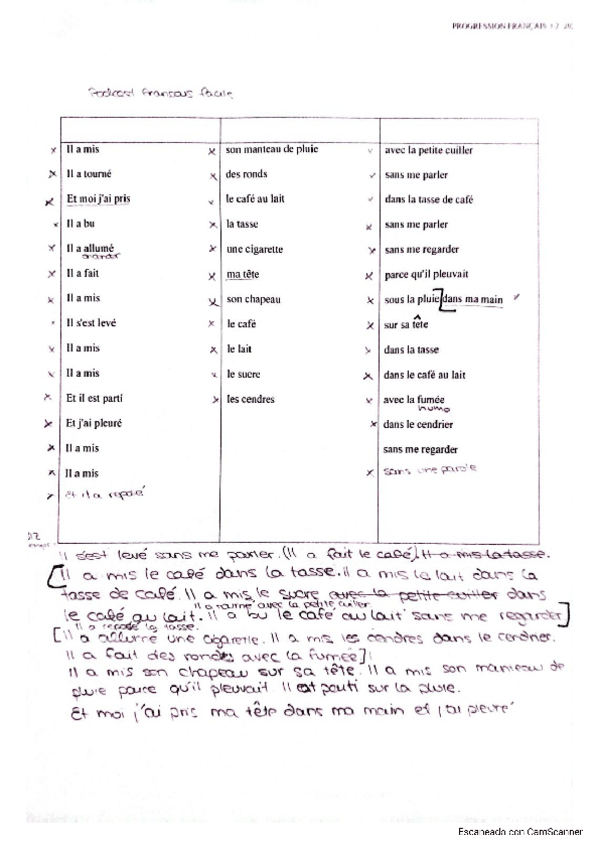 PROGRESSION FRANÇAIS
Podcast Français facile
Il a mis son manteau de pluie avec la petite cuiller
Il a tourné des ronds sans me parler
Et moi j'ai pris le café au lait dans la tasse de café
Il a bu la tasse sans me parler
Il a allumé une cigarette sans me regarder
Il a fait ma tête parce qu'il pleuvait
Il a mis son chapeau sous la pluie dans ma main
Il s'est levé le café sur sa tête
Il a mis le lait dans la tasse
Il a mis le sucre dans le café au lait
Et il est parti les cendres avec la fumée
humo
Et j'ai pleuré dans le cendrier
Il a mis sans me regarder
Il a mis sans une parole
Et il a reposé
Il s'est levé sans me parler. (Il a fait le café). Il a mis la tasse.
Il a mis le café dans la tasse. il a mis le lait dans la
tasse de café. Il a mis le sucre avec la petite cuiller dans
Il a tourné avec la petite cuiller
le café au lait. Il a bu le café au lait sans me regarder
Il a reposé la tasse.
Il a allumé une cigarette. Il a mis les cendres dans le cendrier.
Il a fait des ronds avec la fumée
Il a mis son chapeau sur sa tête. Il a mis son manteau de
pluie parce qu'il pleuvait. Il est parti sur la pluie.
Et moi j'ai pris ma tête dans ma main et j'ai pleuré
Escaneado con CamScanner